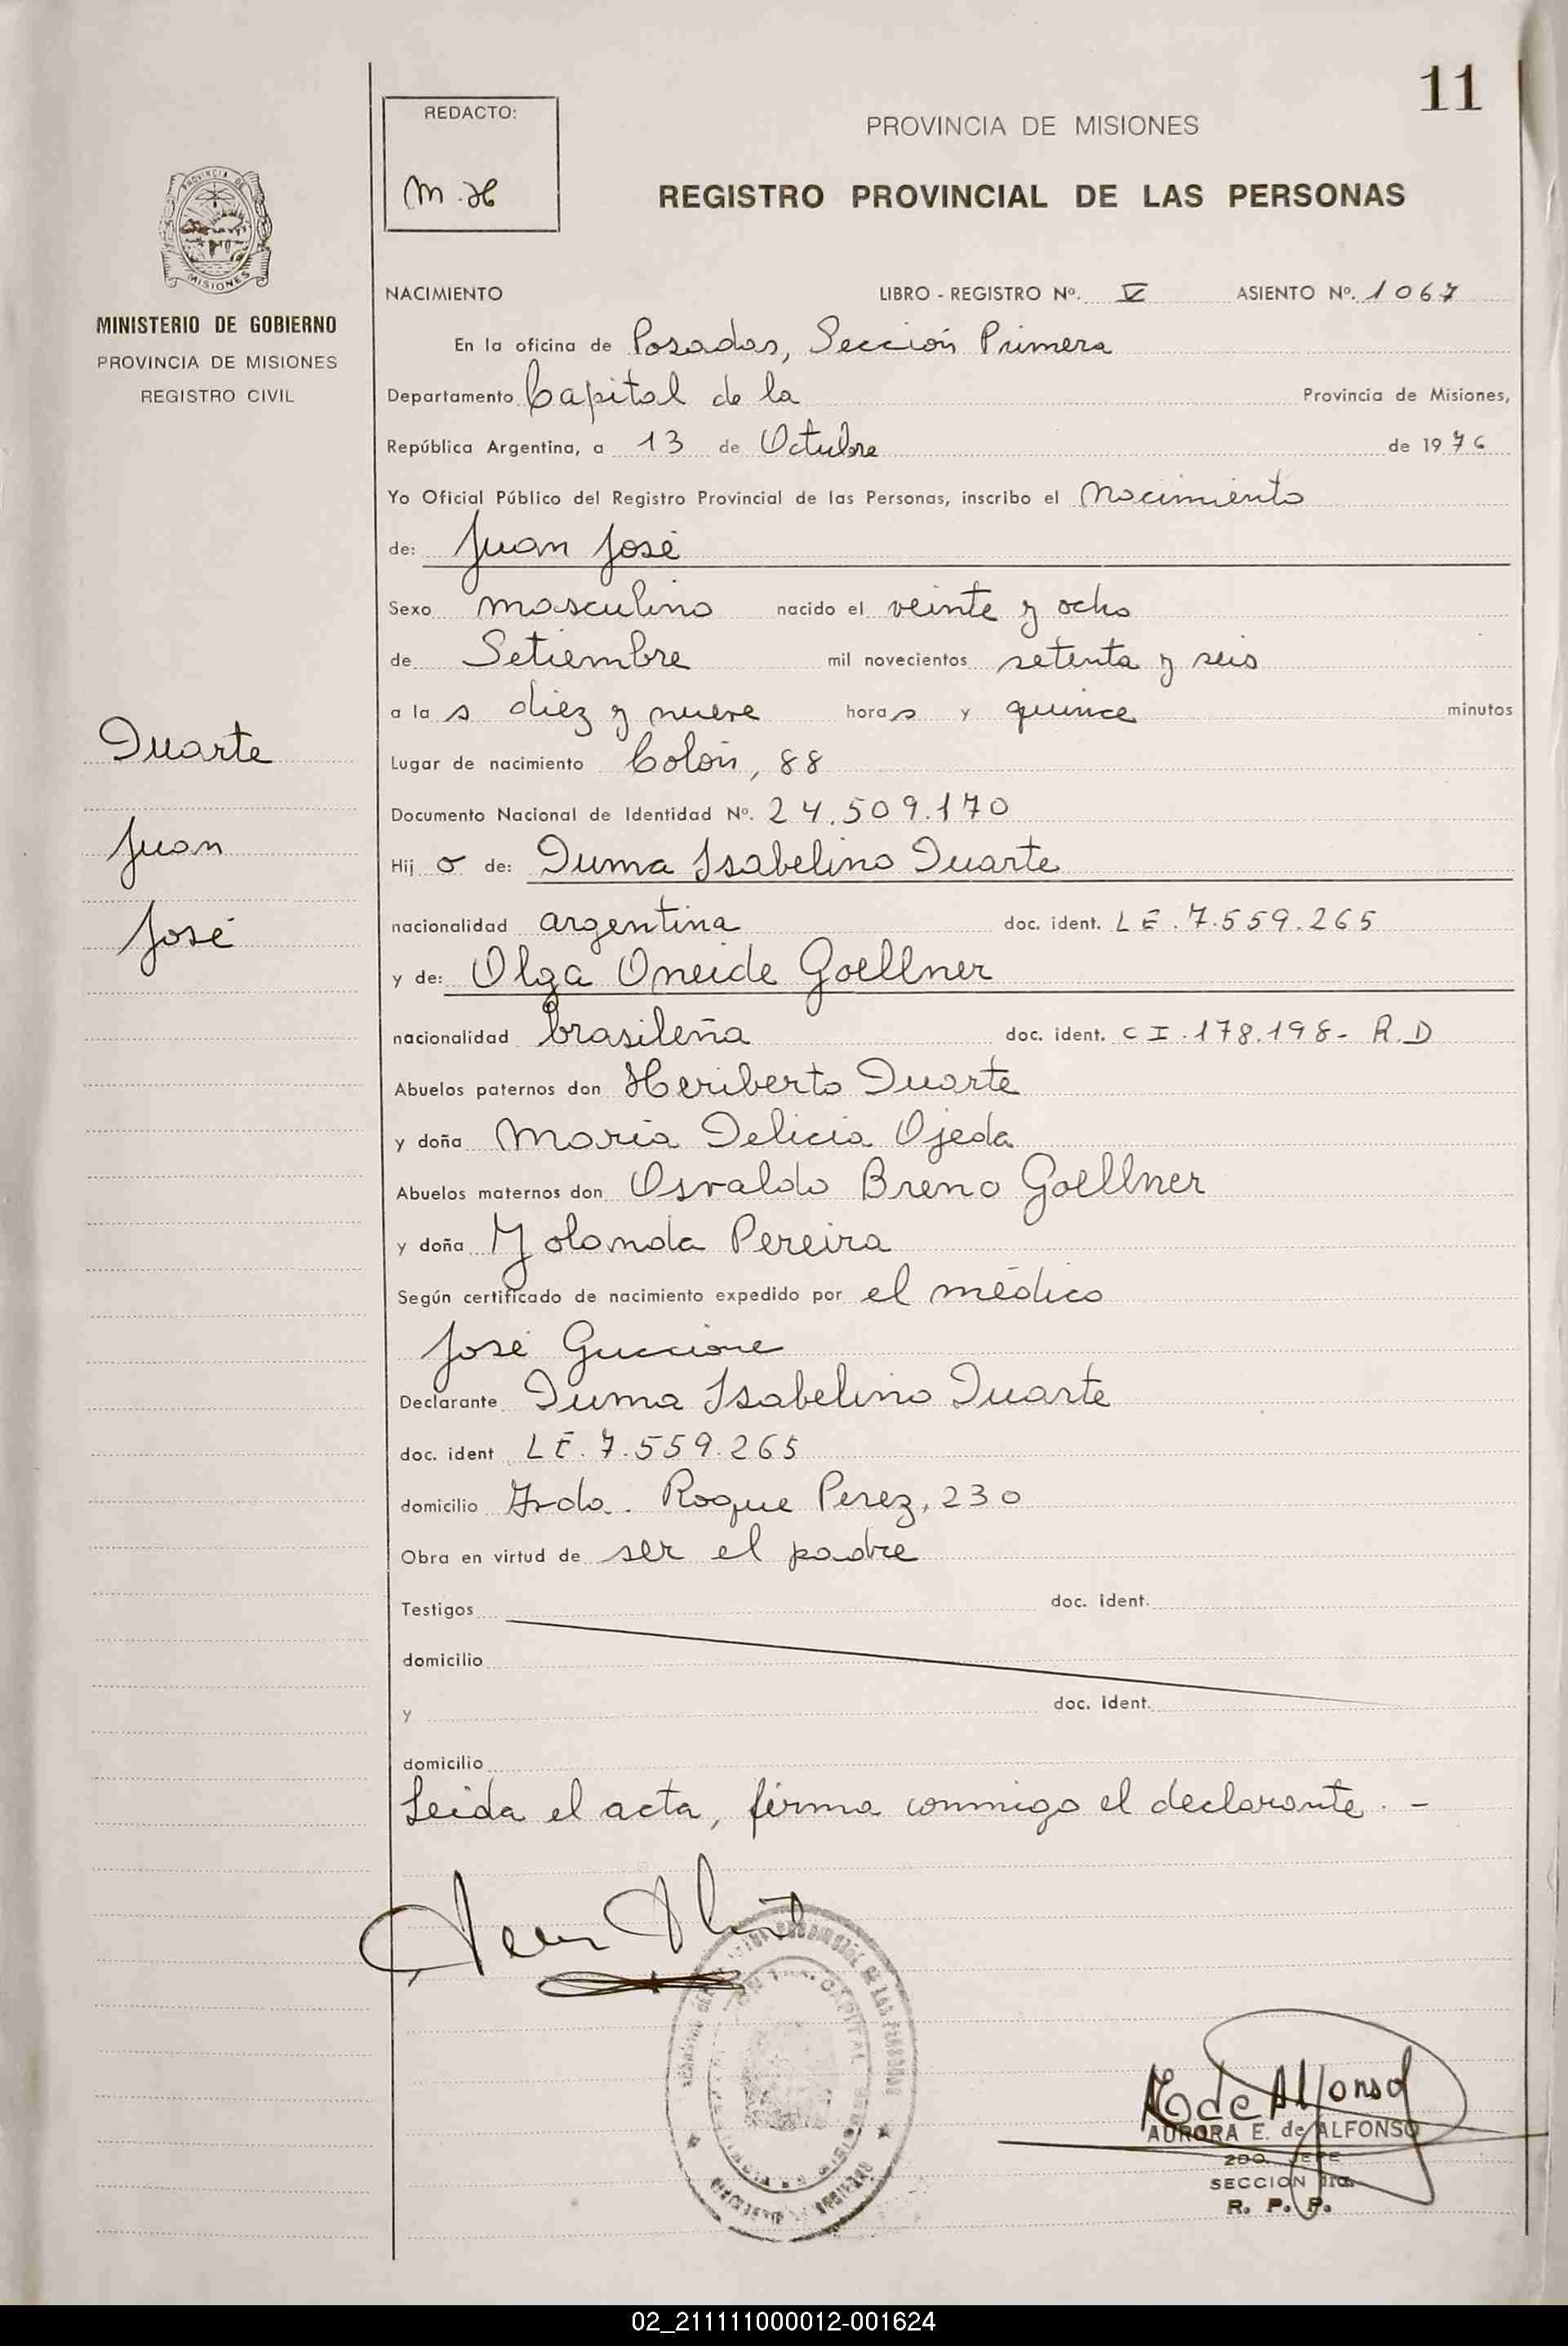 11
REDACTO:
M.H
PROVINCIA DE MISIONES
REGISTRO PROVINCIAL DE LAS PERSONAS
PROVINCIA DE
MISIONES
MINISTERIO DE GOBIERNO
PROVINCIA DE MISIONES
REGISTRO CIVIL
NACIMIENTO LIBRO - REGISTRO Nº. V ASIENTO Nº. 1067
En la oficina de Posadas, Sección Primera
Departamento Capital de la Provincia de Misiones,
República Argentina, a 13 de Octubre de 1976
Yo Oficial Público del Registro Provincial de las Personas, inscribo el Nacimiento
de: Juan José
Sexo masculino nacido el veinte y ocho
de Setiembre mil novecientos setenta y seis
a las diez y nueve horas y quince minutos
Lugar de nacimiento Colón, 88
Documento Nacional de Identidad Nº. 24.509.170
Hijo de: Duma Isabelino Duarte
nacionalidad argentina doc. ident. LE. 7.559.265
y de: Olga Oneide Goellner
nacionalidad brasileña doc. ident. CI.178.198- R.D
Abuelos paternos don Heriberto Duarte
y doña Maria Delicia Ojeda
Abuelos maternos don Osvaldo Breno Goellner
y doña Yolanda Pereira
Según certificado de nacimiento expedido por el médico
José Guccione
Declarante Duma Isabelino Duarte
doc. ident LE. 7.559.265
domicilio Roque Perez, 230
Obra en virtud de ser el padre
Testigos doc. ident.
domicilio
y doc. ident.
domicilio
Leida el acta, firma conmigo el declarante. -
Duarte
Juan
José
CAPITAL
de Alfonso
AURORA E. de ALFONSO
2DO. JEFE
SECCION 1ra.
R. P. P.
02_211111000012-001624